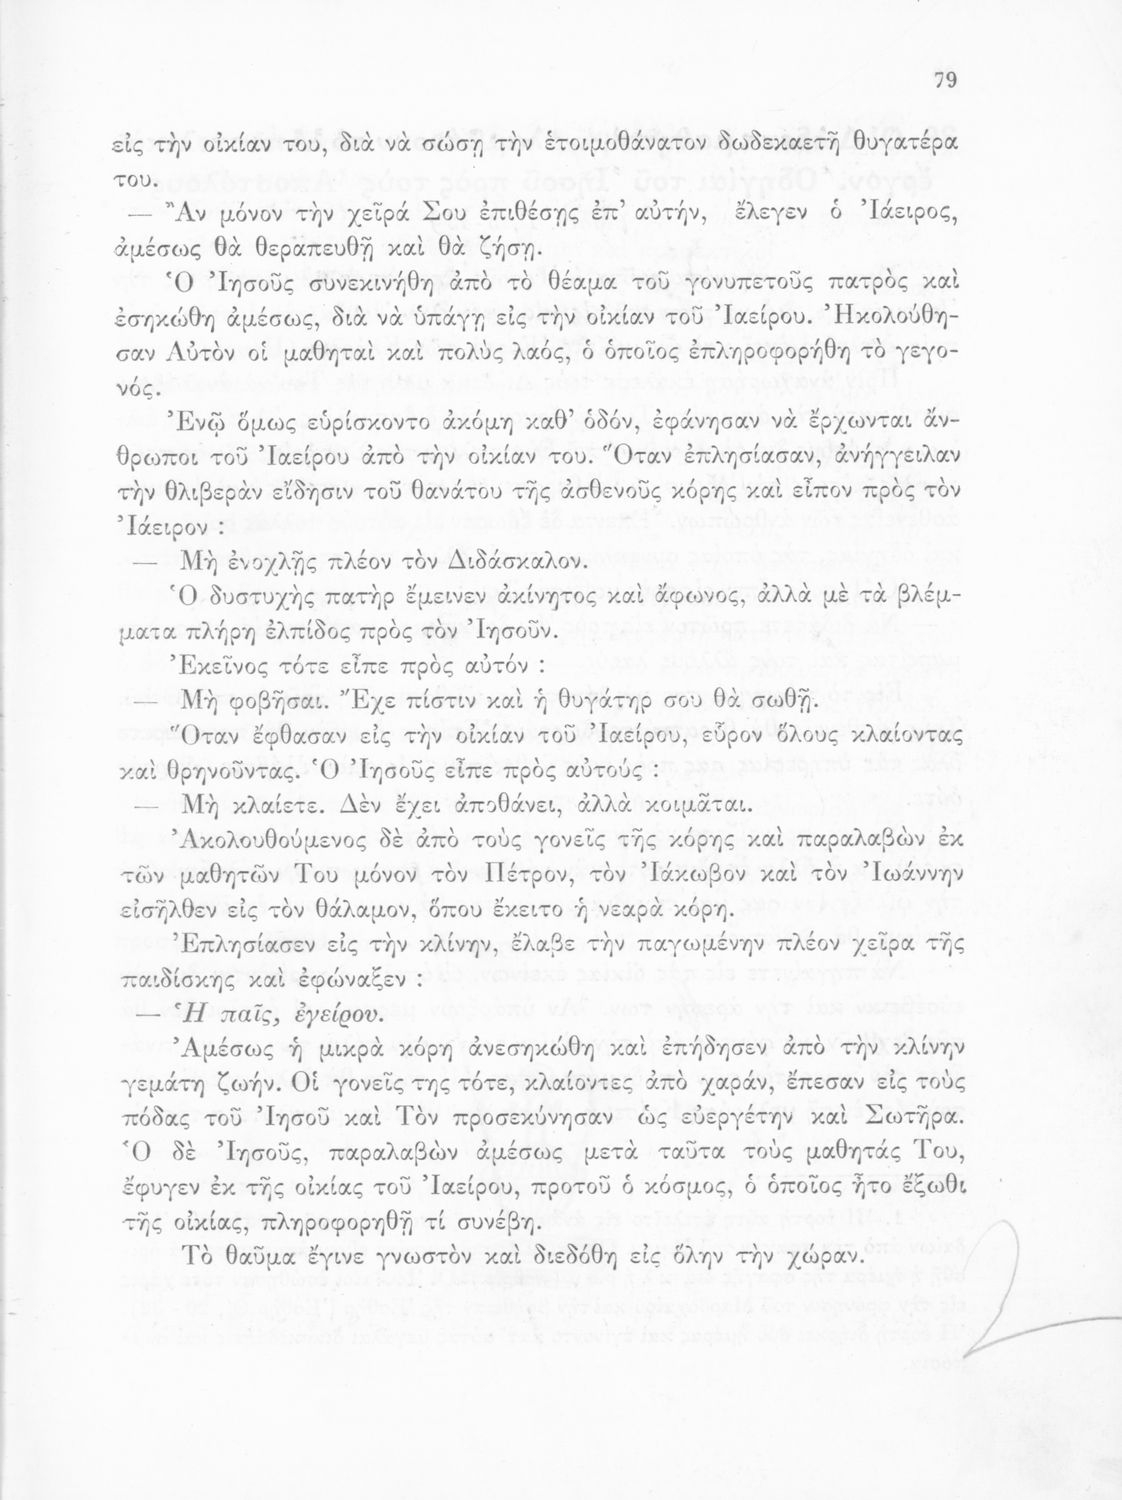 79
εἰς τὴν οἰκίαν του, διὰ νὰ σώσῃ τὴν ἑτοιμοθάνατον δωδεκαετῆ θυγατέρα
του.
— Ἂν μόνον τὴν χεῖρά Σου ἐπιθέσῃς ἐπ’ αὐτήν, ἔλεγεν ὁ Ἰάειρος,
ἀμέσως θὰ θεραπευθῇ καὶ θὰ ζήσῃ.
Ὁ Ἰησοῦς συνεκινήθη ἀπὸ τὸ θέαμα τοῦ γονυπετοῦς πατρὸς καὶ
ἐσηκώθη ἀμέσως, διὰ νὰ ὑπάγῃ εἰς τὴν οἰκίαν τοῦ Ἰαείρου. Ἠκολούθη-
σαν Αὐτὸν οἱ μαθηταὶ καὶ πολὺς λαός, ὁ ὁποῖος ἐπληροφορήθη τὸ γεγο-
νός.
Ἐνῷ ὅμως εὑρίσκοντο ἀκόμη καθ’ ὁδόν, ἐφάνησαν νὰ ἔρχωνται ἄν-
θρωποι τοῦ Ἰαείρου ἀπὸ τὴν οἰκίαν του. Ὅταν ἐπλησίασαν, ἀνήγγειλαν
τὴν θλιβερὰν εἴδησιν τοῦ θανάτου τῆς ἀσθενοῦς κόρης καὶ εἶπον πρὸς τὸν
Ἰάειρον :
— Μὴ ἐνοχλῇς πλέον τὸν Διδάσκαλον.
Ὁ δυστυχὴς πατὴρ ἔμεινεν ἀκίνητος καὶ ἄφωνος, ἀλλὰ μὲ τὰ βλέμ-
ματα πλήρη ἐλπίδος πρὸς τὸν Ἰησοῦν.
Ἐκεῖνος τότε εἶπε πρὸς αὐτόν :
— Μὴ φοβῆσαι. Ἔχε πίστιν καὶ ἡ θυγάτηρ σου θὰ σωθῇ.
Ὅταν ἔφθασαν εἰς τὴν οἰκίαν τοῦ Ἰαείρου, εὗρον ὅλους κλαίοντας
καὶ θρηνοῦντας. Ὁ Ἰησοῦς εἶπε πρὸς αὐτούς :
— Μὴ κλαίετε. Δὲν ἔχει ἀποθάνει, ἀλλὰ κοιμᾶται.
Ἀκολουθούμενος δὲ ἀπὸ τοὺς γονεῖς τῆς κόρης καὶ παραλαβὼν ἐκ
τῶν μαθητῶν Του μόνον τὸν Πέτρον, τὸν Ἰάκωβον καὶ τὸν Ἰωάννην
εἰσῆλθεν εἰς τὸν θάλαμον, ὅπου ἔκειτο ἡ νεαρὰ κόρη.
Ἐπλησίασεν εἰς τὴν κλίνην, ἔλαβε τὴν παγωμένην πλέον χεῖρα τῆς
παιδίσκης καὶ ἐφώναξεν :
— Ἡ παῖς, ἐγείρου.
Ἀμέσως ἡ μικρὰ κόρη ἀνεσηκώθη καὶ ἐπήδησεν ἀπὸ τὴν κλίνην
γεμάτη ζωήν. Οἱ γονεῖς της τότε, κλαίοντες ἀπὸ χαράν, ἔπεσαν εἰς τοὺς
πόδας τοῦ Ἰησοῦ καὶ Τὸν προσεκύνησαν ὡς εὐεργέτην καὶ Σωτῆρα.
Ὁ δὲ Ἰησοῦς, παραλαβὼν ἀμέσως μετὰ ταῦτα τοὺς μαθητάς Του,
ἔφυγεν ἐκ τῆς οἰκίας τοῦ Ἰαείρου, προτοῦ ὁ κόσμος, ὁ ὁποῖος ἦτο ἔξωθι
τῆς οἰκίας, πληροφορηθῇ τί συνέβη.
Τὸ θαῦμα ἔγινε γνωστὸν καὶ διεδόθη εἰς ὅλην τὴν χώραν.